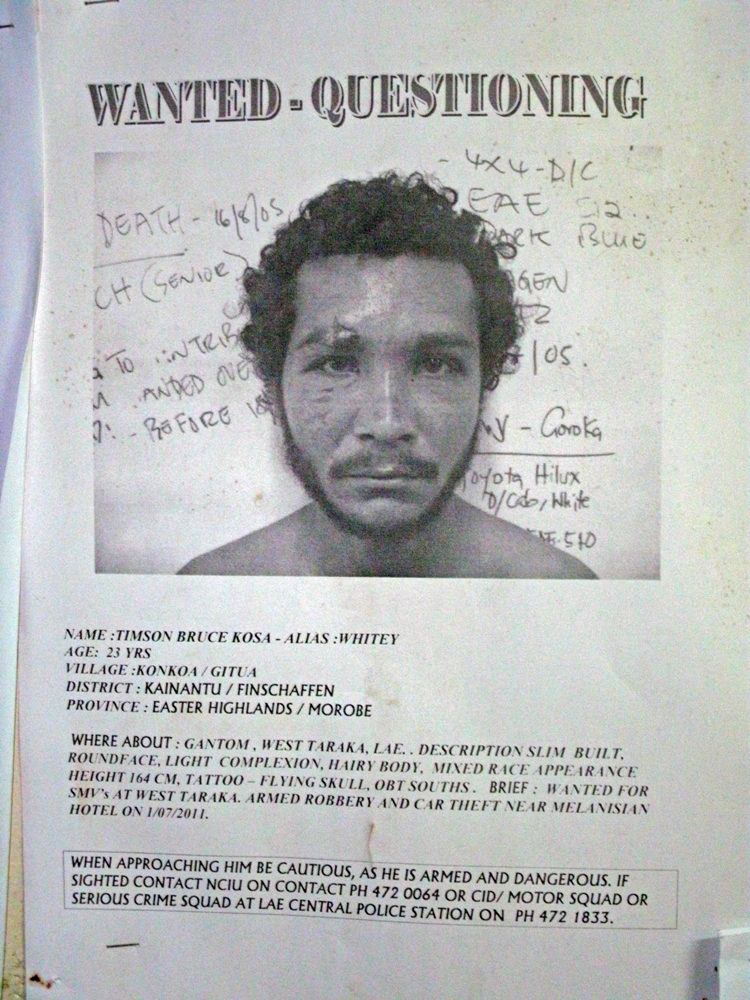 WANTED - QUESTIONING
DEATH - 16/8/05
CH (SENIOR)
TO
ANDED OVE
- BEFORE
- 4X4-D/C
EAE
DARK BLUE
GEN
/05.
- Goroka
oyota Hilux
D/Cab, White
510
NAME :TIMSON BRUCE KOSA - ALIAS :WHITEY
AGE: 23 YRS
VILLAGE :KONKOA / GITUA
DISTRICT : KAINANTU / FINSCHAFFEN
PROVINCE : EASTER HIGHLANDS / MOROBE
WHERE ABOUT : GANTOM , WEST TARAKA, LAE. . DESCRIPTION SLIM BUILT,
ROUNDFACE, LIGHT COMPLEXION, HAIRY BODY, MIXED RACE APPEARANCE
HEIGHT 164 CM, TATTOO – FLYING SKULL, OBT SOUTHS. BRIEF : WANTED FOR
SMV's AT WEST TARAKA. ARMED ROBBERY AND CAR THEFT NEAR MELANISIAN
HOTEL ON 1/07/2011.
WHEN APPROACHING HIM BE CAUTIOUS, AS HE IS ARMED AND DANGEROUS. IF
SIGHTED CONTACT NCIU ON CONTACT PH 472 0064 OR CID/ MOTOR SQUAD OR
SERIOUS CRIME SQUAD AT LAE CENTRAL POLICE STATION ON PH 472 1833.